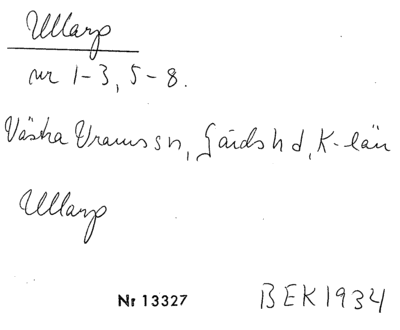 Ullarp
nr 1-3, 5-8.
Västra Vrams sn, Gärds hd, K-län
Ullarp
Nr 13327 BEK1934